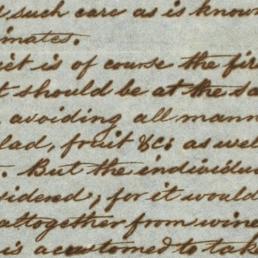 such care as is know
imates.
iet is of course the fir
t should be at the sa
avoiding all mann
lad, fruit &c: as wel
. But the individu
sidered, for it would
altogether from wine
is accustomed to tak